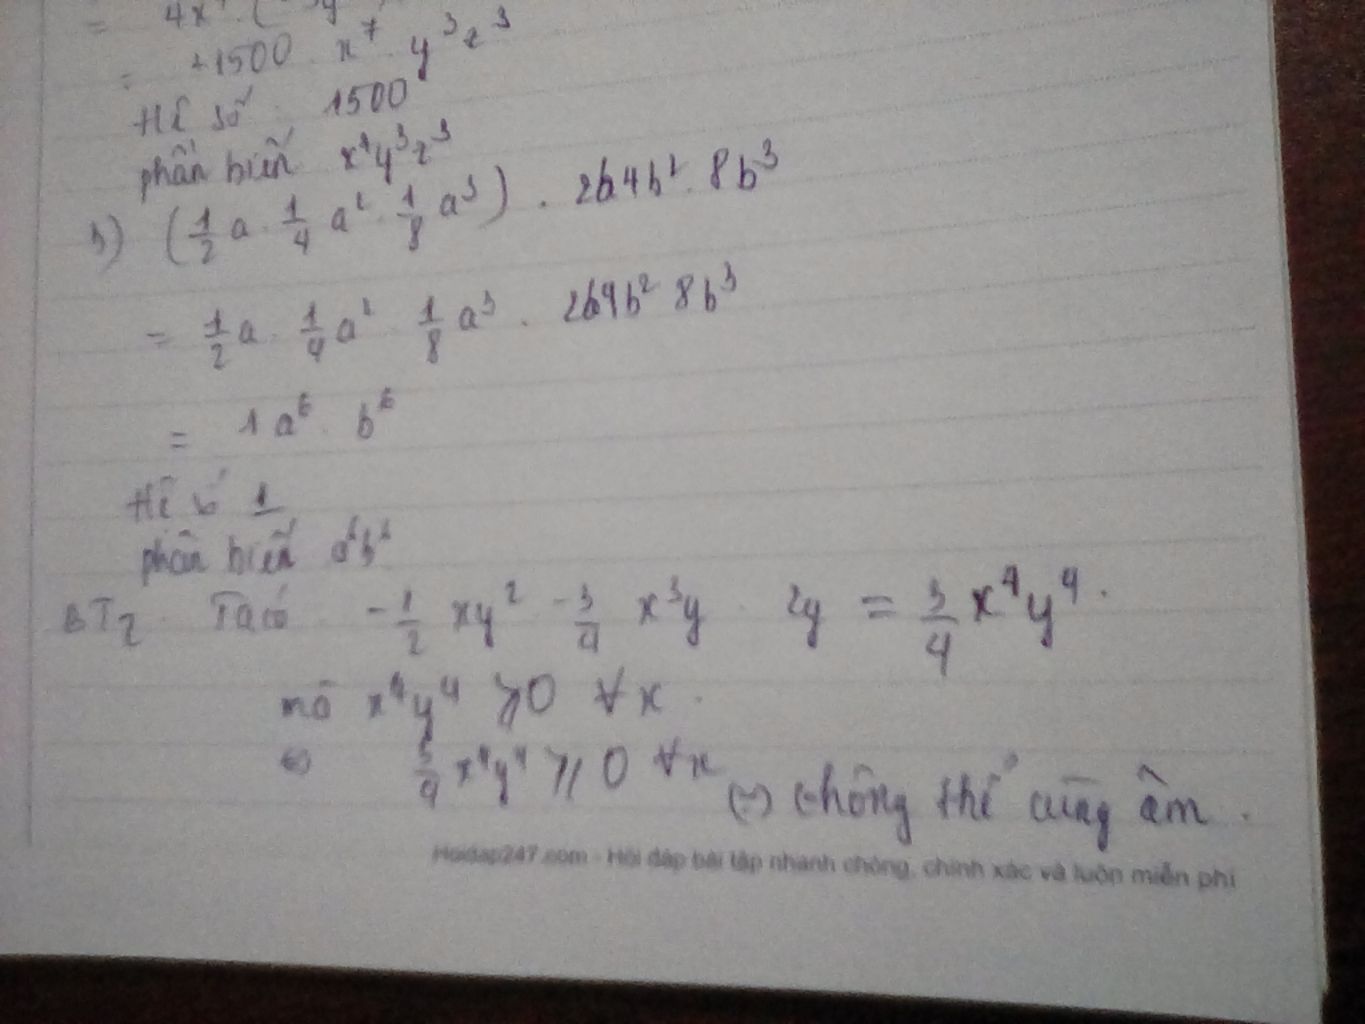 = 4x
= +1500 . x⁷ y³z³
Hệ số : 1500
phần biến x⁷y³z³
b) (1/2 a . 1/4 a² . 1/8 a³) . 2b.4b² . 8b³
= 1/2 a . 1/4 a² . 1/8 a³ . 2b4b² 8b³
= 1a⁶ . b⁶
Hệ số 1
phần biến a⁶b⁶
BT2 Ta có -1/2 xy² -3/4 x³y . 2y = 3/4 x⁴y⁴.
mà x⁴y⁴ ≥0 ∀x .
3/4 x⁴y⁴ ≥ 0 ∀x (=) không thể cùng âm .
Hoidap247.com - Hỏi đáp bài tập nhanh chóng, chính xác và luôn miễn phí